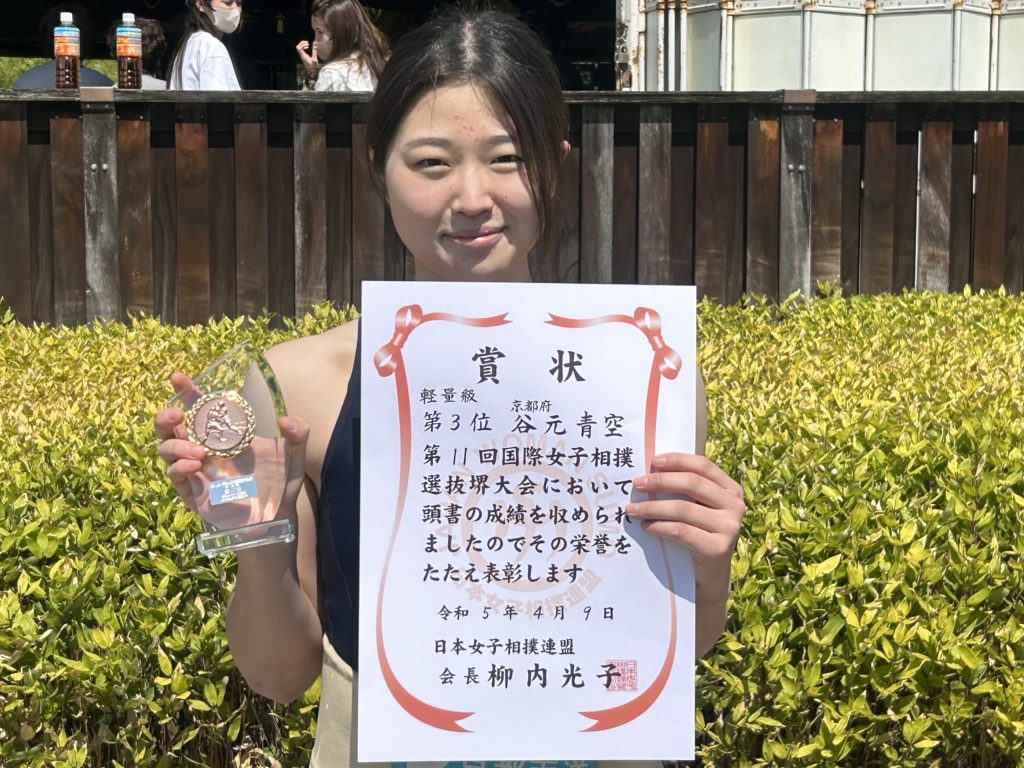 賞状
軽量級
京都府
第3位 谷元青空
第11回国際女子相撲
選抜堺大会において
頭書の成績を収められ
ましたのでその栄誉を
たたえ表彰します
令和5年4月9日
日本女子相撲連盟
会長 柳内光子